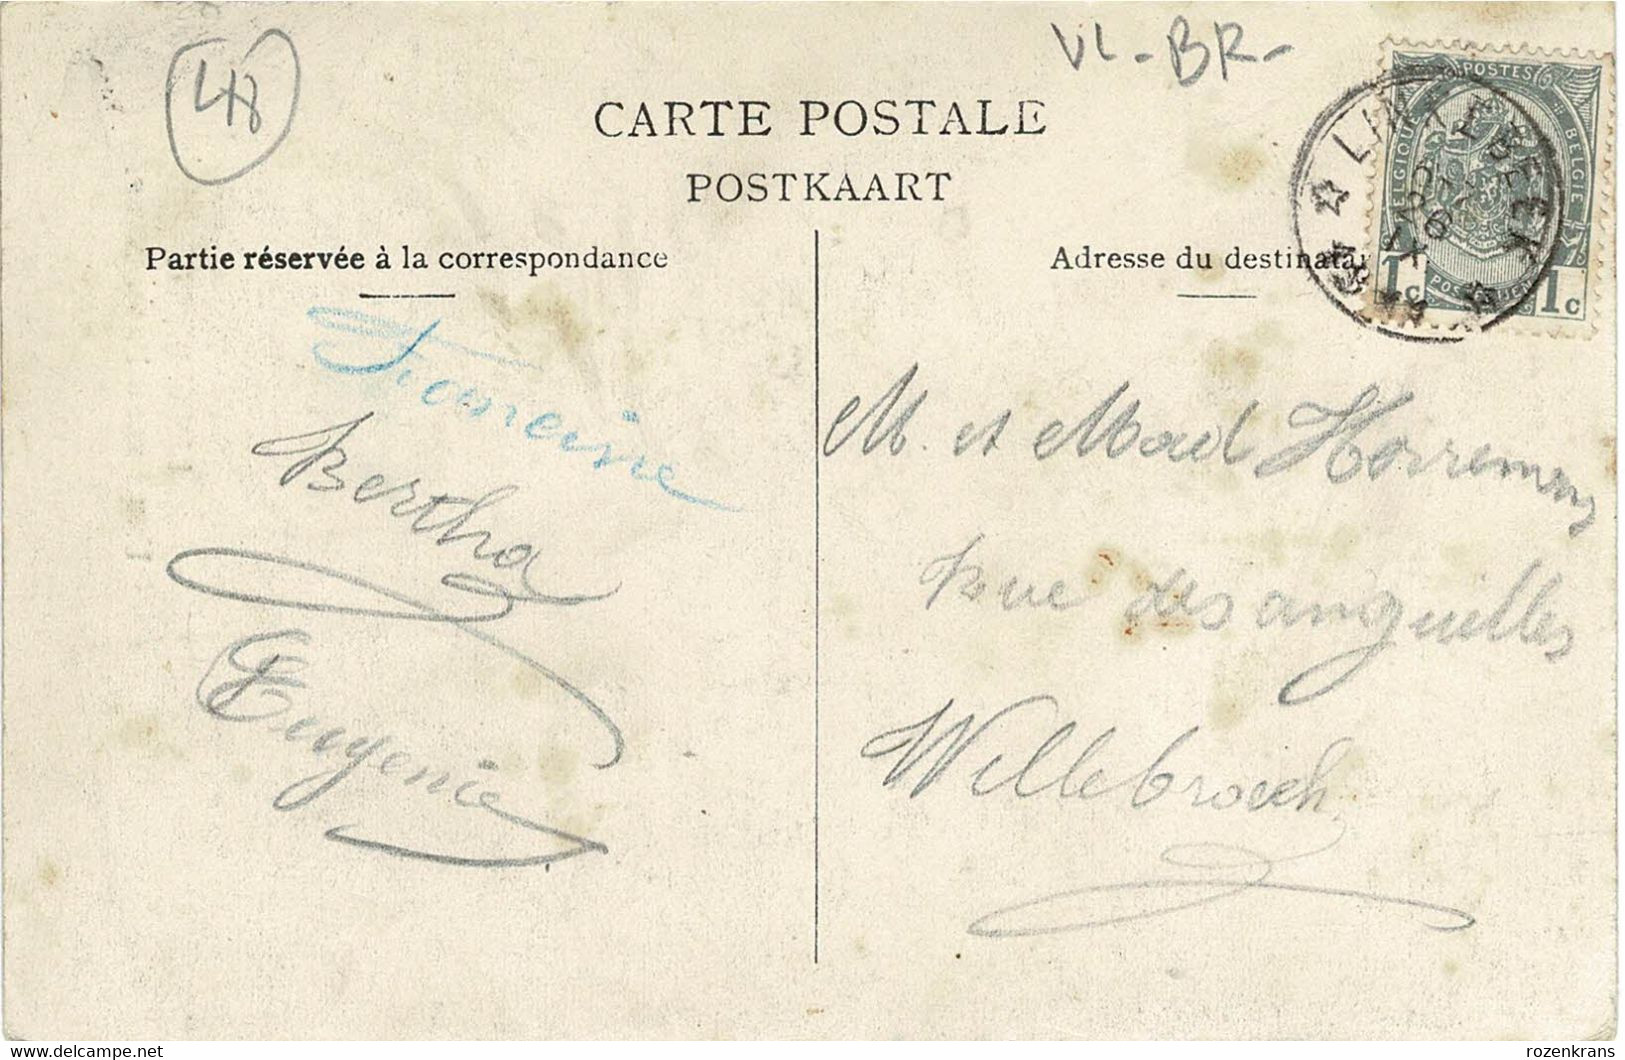 48
VL - BR -
CARTE POSTALE
POSTKAART
Partie réservée à la correspondance
Adresse du destinatai
LINKEBEEK
POSTES
BELGIQUE
BELGIE
1c
1c
Bertha
Eugenie
M. et Mad Horremans
Rue des anguilles
Willebroeck
delcampe.net
rozenkrans